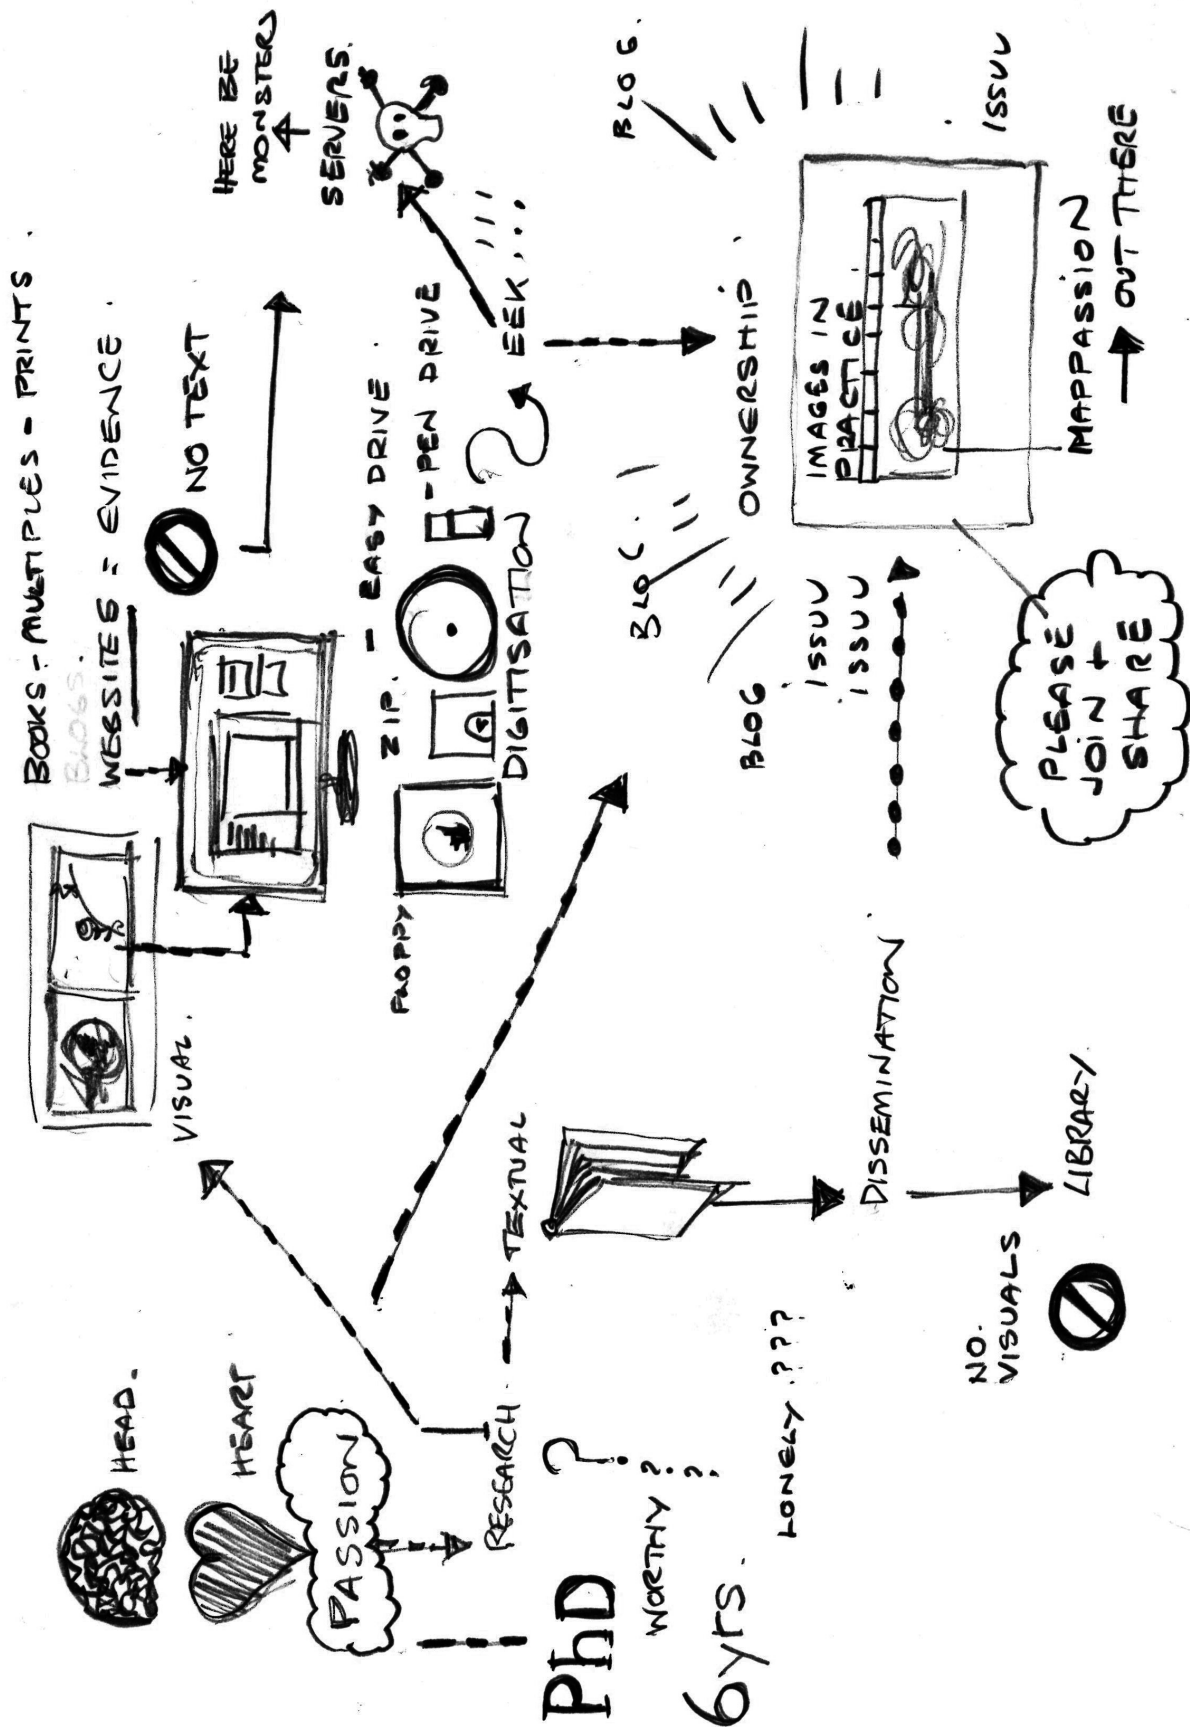 HEAD.
HEART
PASSION
RESEARCH
PhD ?
WORTHY ? ?
6yrs.
LONELY ???
VISUAL.
TEXTUAL
DISSEMINATION
NO.
VISUALS
LIBRARY
BOOKS - MULTIPLES - PRINTS.
BLOGS.
WEBSITES = EVIDENCE.
NO TEXT
HERE BE
MONSTERS
SERVERS.
FLOPPY
ZIP. - EASY DRIVE
- PEN DRIVE
DIGITISATION
EEK...
OWNERSHIP
BLOG
BLOG.
BLOG.
ISSUU
ISSUU
ISSUU
IMAGES IN
PRACTICE
MAPPASSION
OUT THERE
PLEASE
JOIN +
SHARE